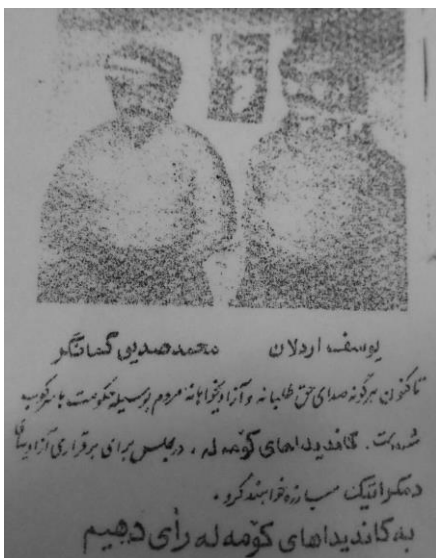 یوسف اردلان محمد صدیق کمانگر
تاکنون هرگونه صدای حق طلبانه و آزادیخواهانه مردم بوسیله حکومت ها سرکوب
شده است. کاندیداهای کۆمه له ، در مجلس برای برقراری آزادیهای
دمکراتیک مبارزه خواهند کرد.
به کاندیداهای کۆمه له رأی دهیم